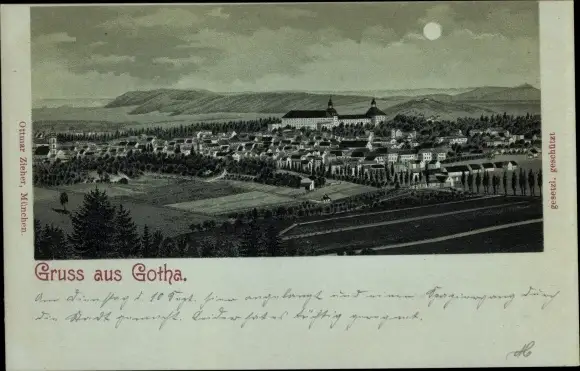 Ottmar Zieher, München.
gesetzl. geschützt
Gruss aus Gotha.
Am Dienstag d. 10 Sept. hier angelangt und einen Spaziergang durch
die Stadt gemacht. Leider hat es tüchtig geregnet.